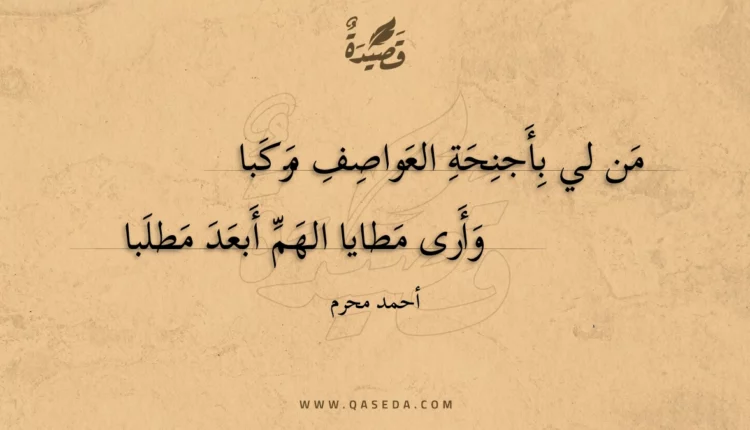 قَصِيدَةٌ
مَن لي بِأَجنِحَةِ العَواصِفِ مَركَبا
وَأَرى مَطايا الهَمِّ أَبعَدَ مَطلَبا
أحمد محرم
WWW.QASEDA.COM